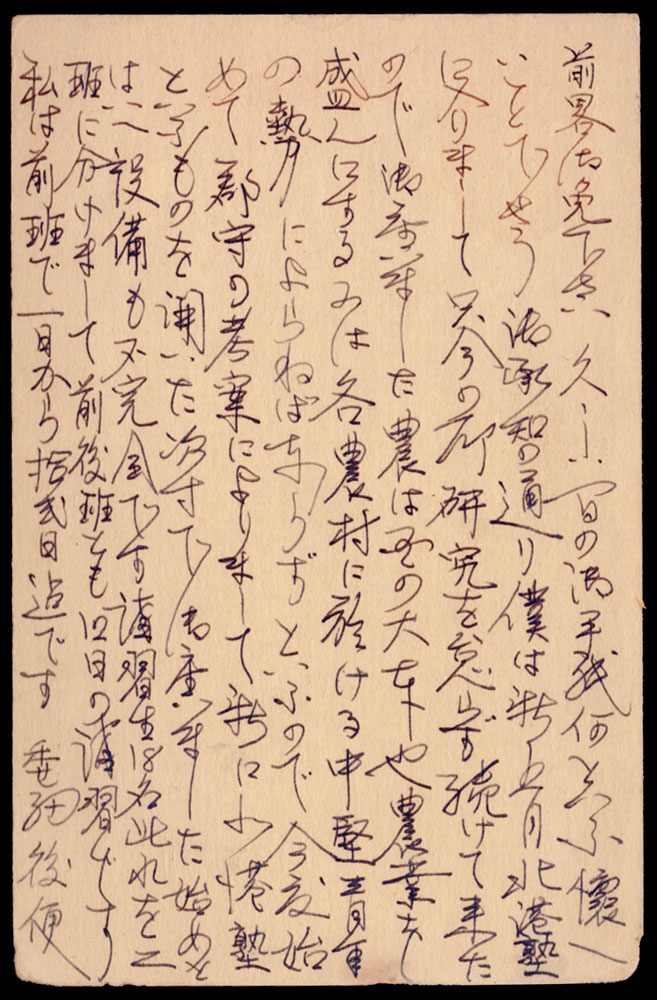 前畧御免下さい 久しい間の御手紙何と云ふ懐し
いことでせう 御承知の通り僕は新五月北港塾
に入りまして只今の所研究を怠らず続けて来た
ので御座いました農は国の大本也農業を
盛んにするには各農村に於ける中堅青年
の勢力によらねばならずといふので今度始
めて郡守の考案によりまして新に北港塾
と云ふものを開いた次第で御座いました始めと
は云へ設備も不完全です講習生は名此れを二
班に分けまして前後班とも 日の講習です
私は前班で一日から拾弐日迄です 委細後便